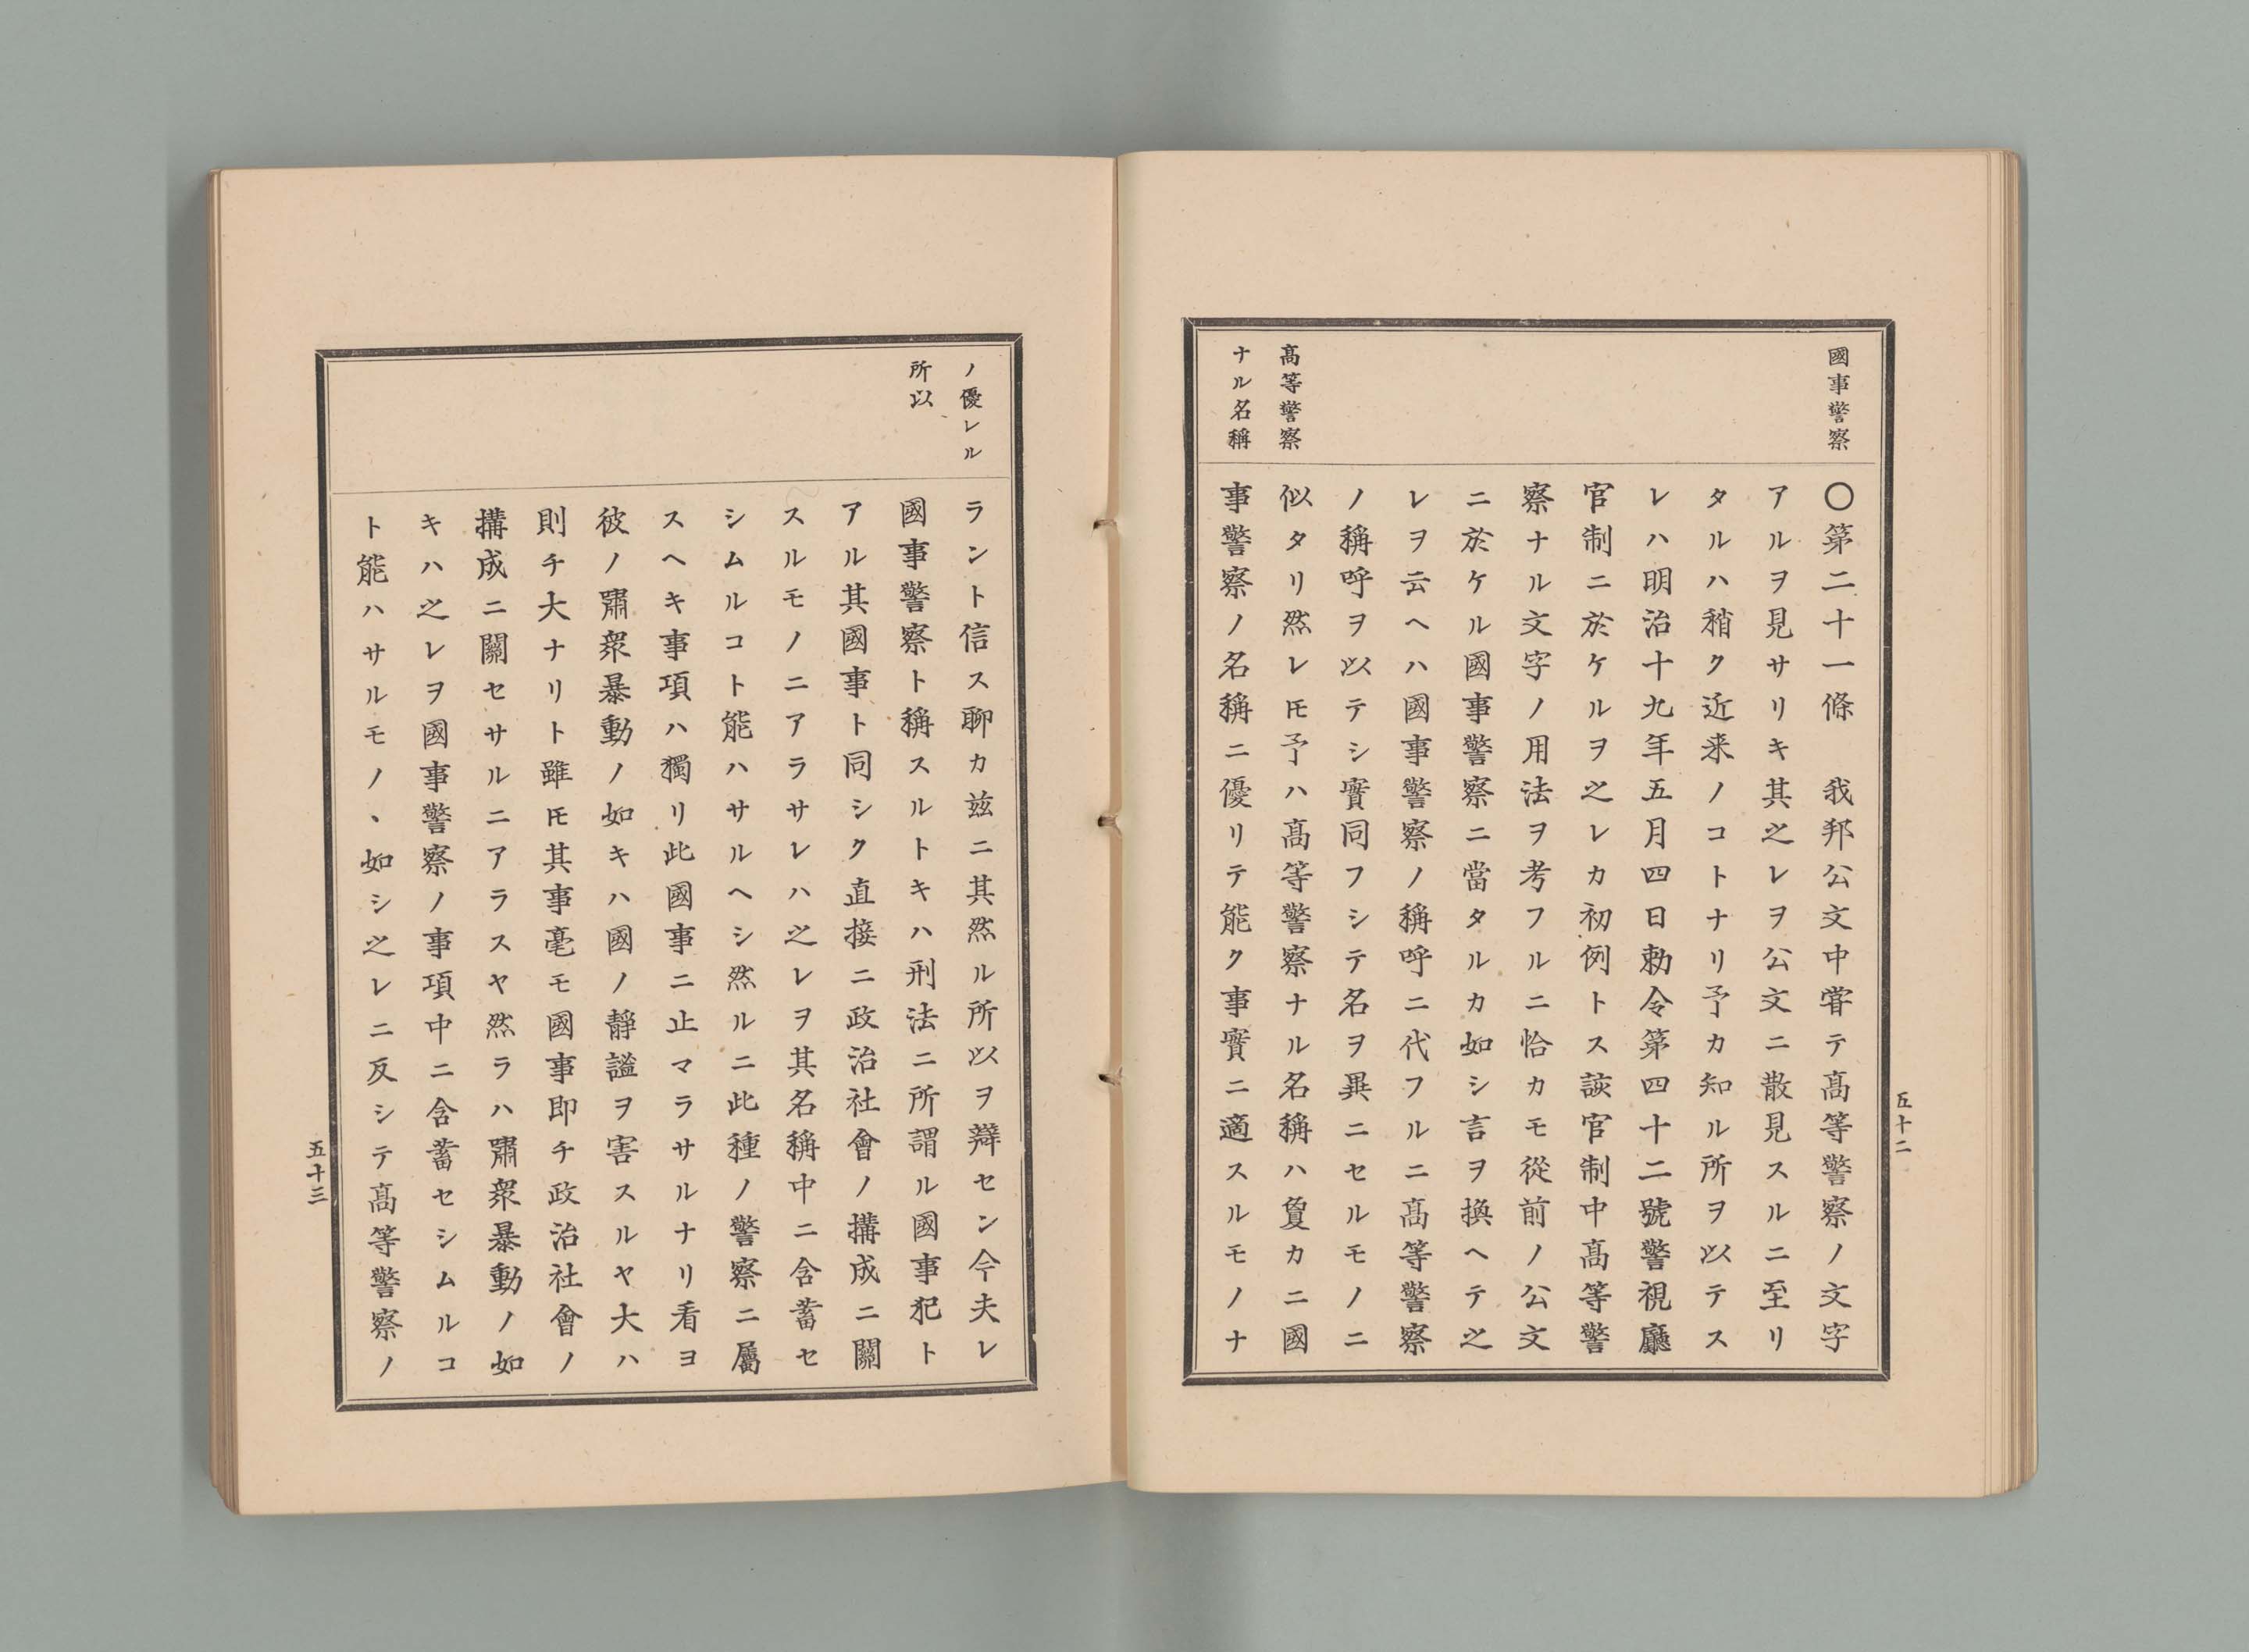 五十二
國事警察
〇第二十一條　我邦公文中甞テ髙等警察ノ文字
アルヲ見サリキ其之レヲ公文ニ散見スルニ至リ
タルハ稍ク近来ノコトナリ予カ知ル所ヲ以テス
レハ明治十九年五月四日勅令第四十二號警視廳
官制ニ於ケルヲ之レカ初例トス該官制中髙等警
察ナル文字ノ用法ヲ考フルニ恰カモ從前ノ公文
ニ於ケル國事警察ニ當タルカ如シ言ヲ換ヘテ之
レヲ云ヘハ國事警察ノ稱呼ニ代フルニ髙等警察
ノ稱呼ヲ以テシ實同フシテ名ヲ異ニセルモノニ
髙等警察
似タリ然レ𪜈予ハ髙等警察ナル名稱ハ夐カニ國
ナル名稱
事警察ノ名稱ニ優リテ能ク事實ニ適スルモノナ
ノ優レル
ラント信ス聊カ玆ニ其然ル所以ヲ辯セン今夫レ
所以
國事警察ト稱スルトキハ刑法ニ所謂ル國事犯ト
アル其國事ト同シク直接ニ政治社會ノ搆成ニ關
スルモノニアラサレハ之レヲ其名稱中ニ含蓄セ
シムルコト能ハサルヘシ然ルニ此種ノ警察ニ屬
スヘキ事項ハ獨リ此國事ニ止マラサルナリ看ヨ
彼ノ嘯衆暴動ノ如キハ國ノ靜謐ヲ害スルヤ大ハ
則チ大ナリト雖𪜈其事毫モ國事即チ政治社會ノ
搆成ニ關セサルニアラスヤ然ラハ嘯衆暴動ノ如
キハ之レヲ國事警察ノ事項中ニ含蓄セシムルコ
ト能ハサルモノヽ如シ之レニ反シテ髙等警察ノ
五十三